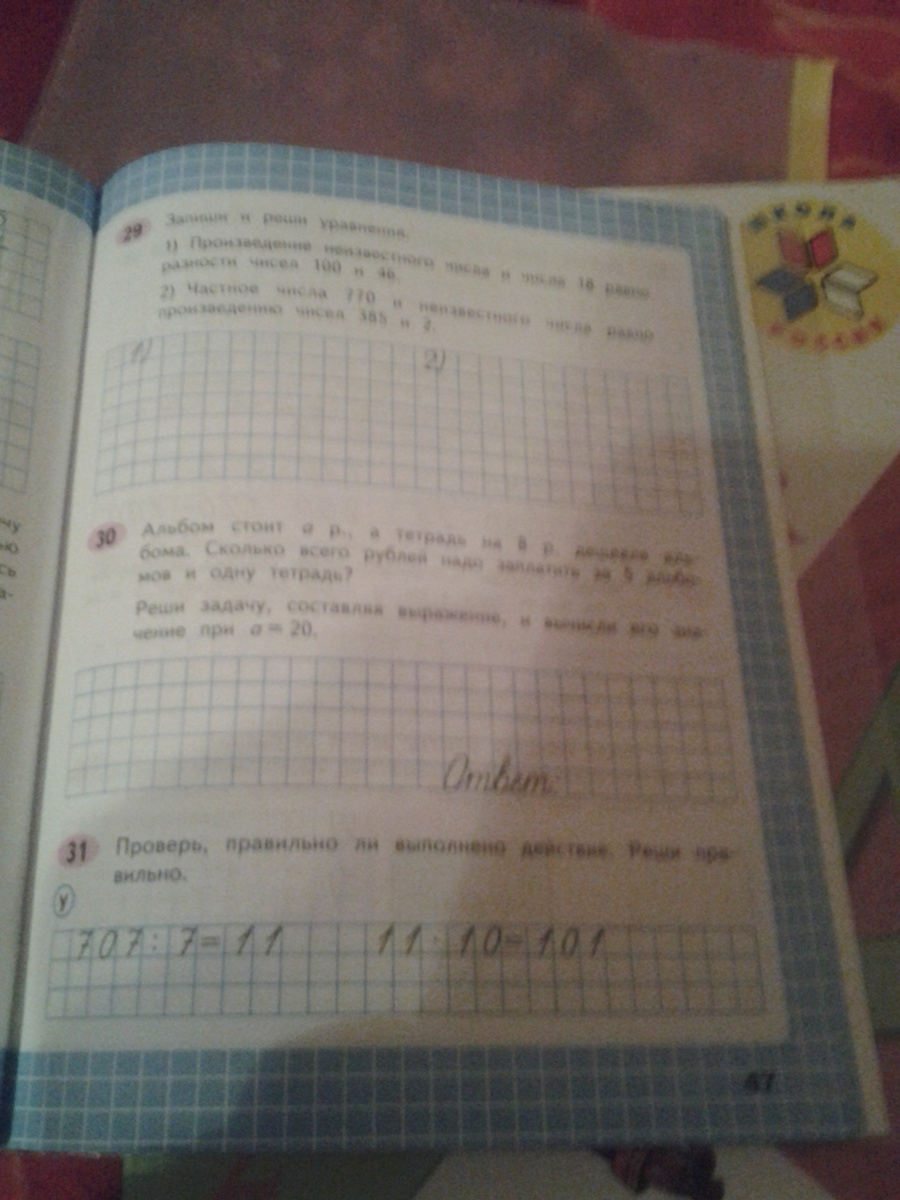 29 Запиши и реши уравнения.
1) Произведение неизвестного числа и числа 18 равно
разности чисел 100 и 46.
2) Частное числа 770 и неизвестного числа равно
произведению чисел 385 и 2.
1) 2)
30 Альбом стоит a р., а тетрадь на 8 р. дешевле аль-
бома. Сколько всего рублей надо заплатить за 5 альбо-
мов и одну тетрадь?
Реши задачу, составляя выражение, и вычисли его зна-
чение при a = 20.
Ответ:
31 Проверь, правильно ли выполнено действие. Реши пра-
вильно.
У
707 : 7 = 11 11 · 10 = 101
47
ШКОЛА
РОССИИ
чу
ю
сь
а-